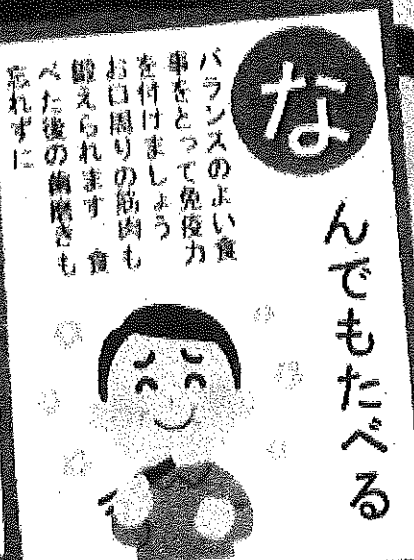 なんでもたべる
バランスのよい食
事をとって免疫力
を付けましょう
お口周りの筋肉も
鍛えられます 食
べた後の歯磨きも
忘れずに